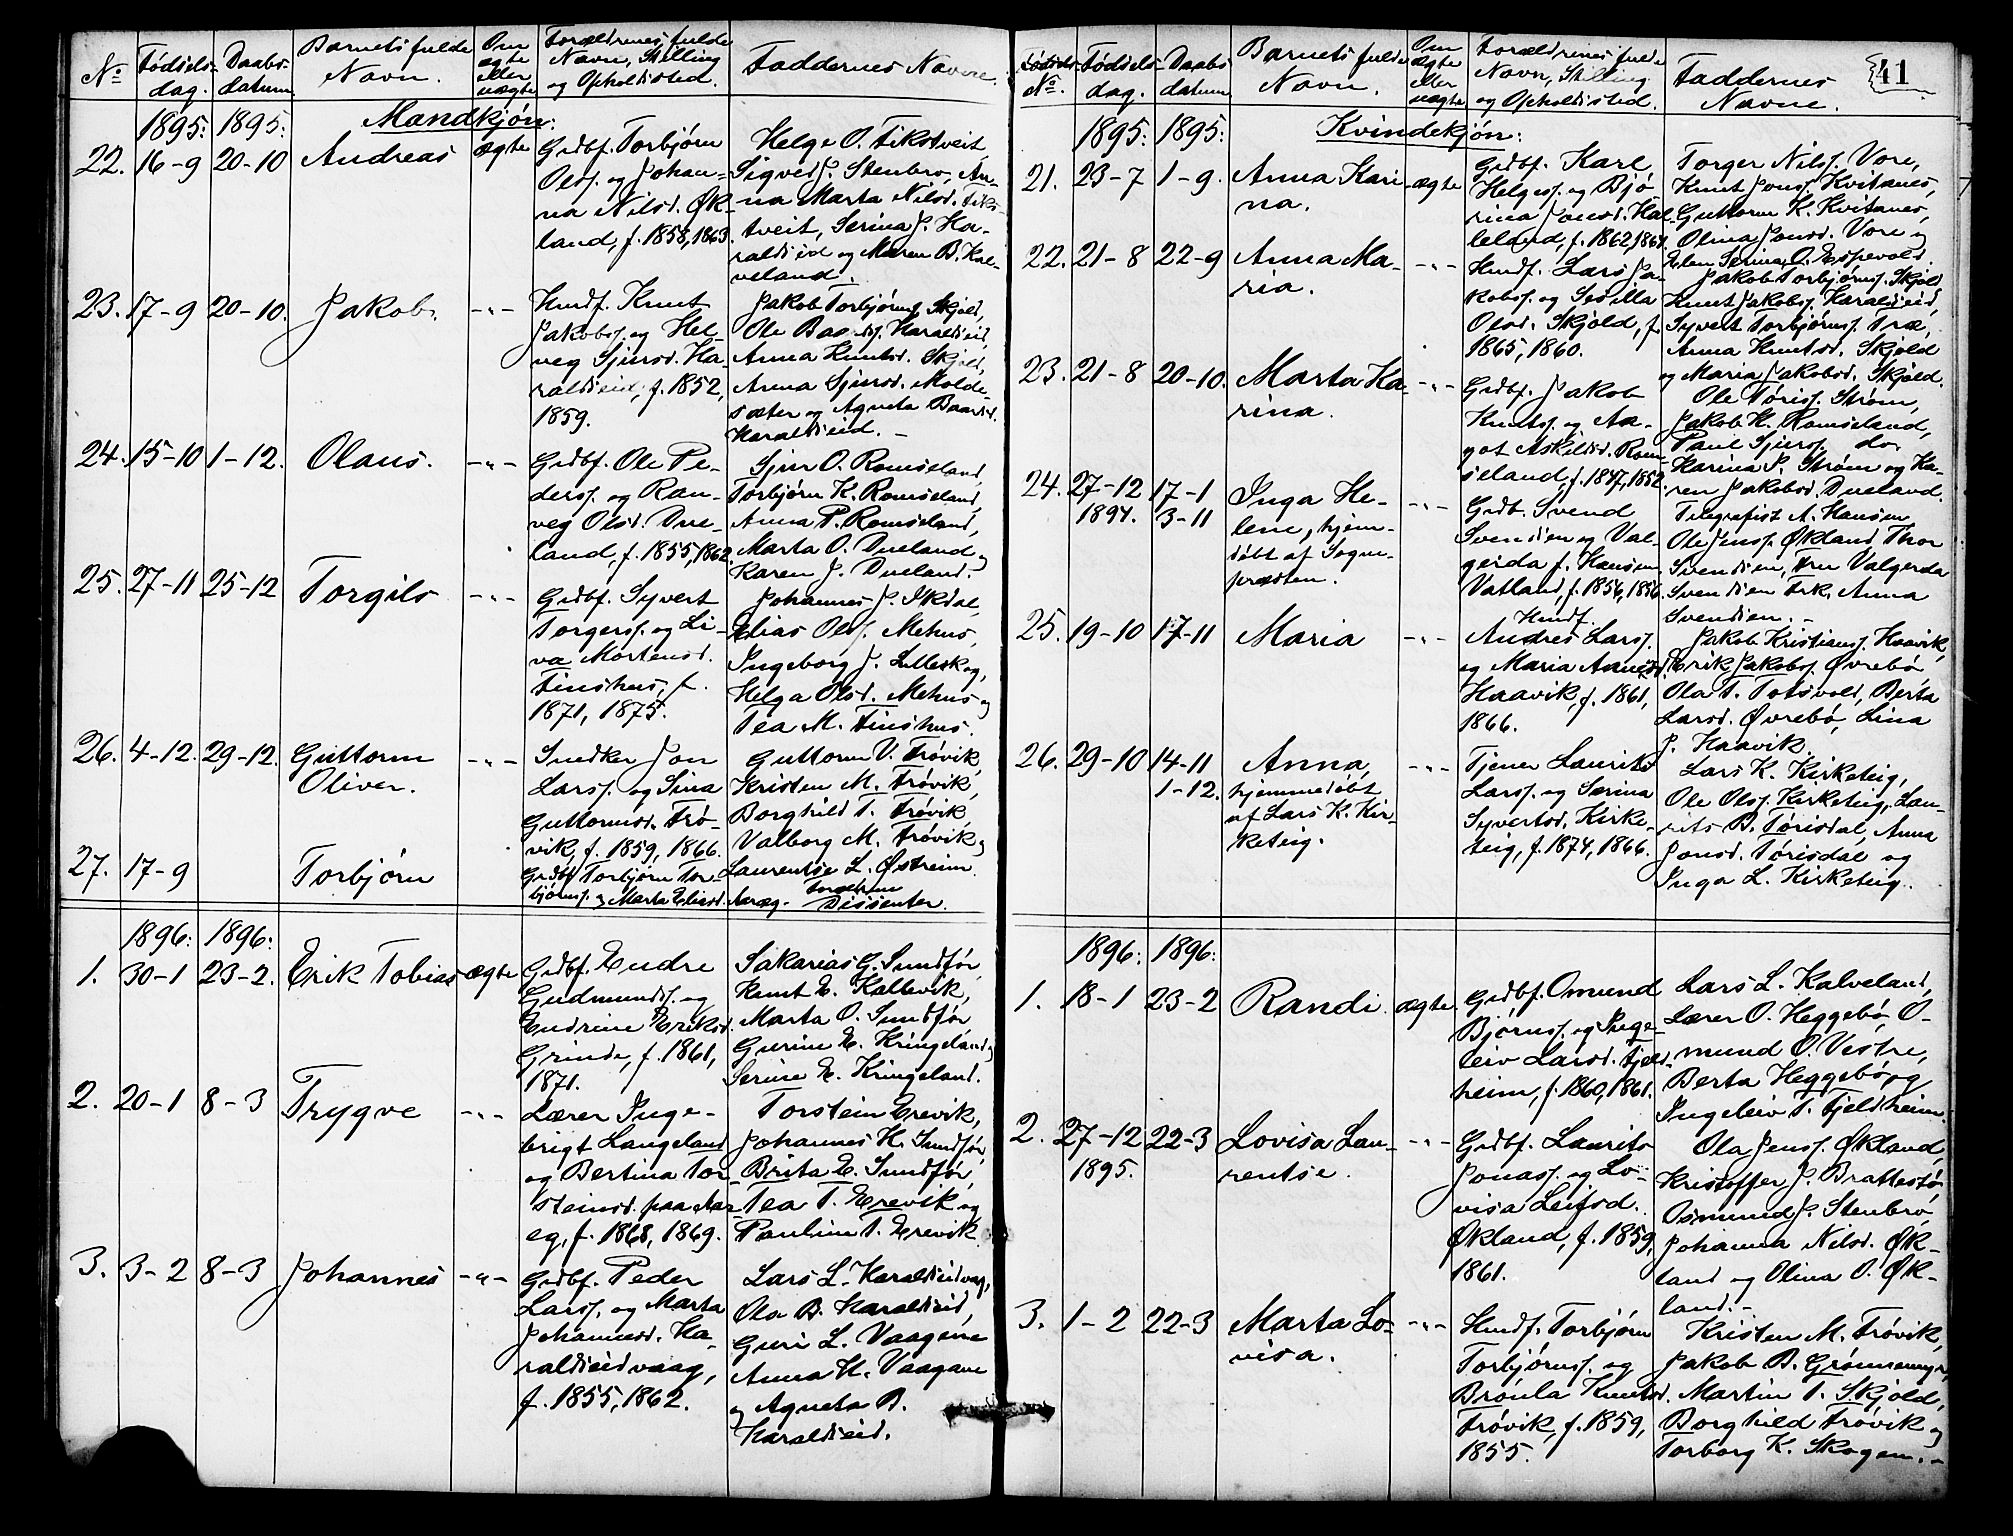 41
No
Fødsels-
dag.
Daabs-
datum
Barnets fulde
Navn.
Om
ægte
eller
uægte
Forældrenes fulde
Navn, Stilling
og Opholdssted.
Faddernes Navne.
1895: 1895:
Mandkjøn:
22. 16-9 20-10 Andreas ægte
Grdbf. Torbjørn
Olss. og Johan-
na Nilsd. Øk-
land, f. 1858, 1863.
Helge O. Fikstveit,
Sigved J. Stenbro, An-
na Marta Nilsd. Fiks-
tveit, Serina J. Ha-
raldseid og Maren B. Kal-
veland.
23. 17-9 20-10. Jakob. -"-
Husf. Knut
Jakobs. og Hel-
veg Sjursd. Ha-
raldseid, f. 1852,
1859.
Jakob Torbjørns. Skjold,
Ole Baards. Haraldseid,
Anna Knutsd. Skjold,
Anna Sjursd. Molde-
sæter og Agneta Baardsd.
Haraldseid. -
24. 15-10 1-12. Olaus. -"-
Grdbf. Ole Pe-
ders. og Ran-
veg Olsd. Due-
land, f. 1855, 1862.
Sjur O. Romseland,
Torbjørn K. Romseland,
Anna P. Romseland,
Marta O. Dueland og
Karen J. Dueland.
25. 27-11 25-12 Torgils -"-
Grdbf. Syvert
Torgers. og Li-
va Mortensd.
Finshus, f.
1871, 1875.
Johannes J. Ilsdal,
Elias Ols. Mehus,
Ingeborg J. Lilleskog,
Helga Olsd. Mehus og
Tea M. Finshus.
26. 4-12. 29-12. Guttorm
Oliver. -"-
Snedker Jon
Larss. og Sina
Guttormsd. Frø-
vik, f. 1859, 1866.
Guttorm V. Frøvik,
Kristen M. Frøvik,
Borghild T. Frøvik,
Valborg M. Frøvik og
Laurentse L. Østreim.
27. 17-9 Torbjørn
Grdbf Torbjørn Tor-
bjørns. og Marta Eliasd. Aaræg.
Forældrene
Dissenter.
1896: 1896:
1. 30-1 23-2. Erik Tobias ægte
Grdbf. Endre
Gudmunds. og
Endrine Eriksd.
Grinde, f. 1861,
1871.
Sakarias G. Sundfør,
Knut E. Kallevik,
Marta O. Sundfør
Gurine E. Kringeland og
Serine E. Kringeland.
2. 20-1 8-3 Trygve -"-
Lærer Inge-
brigt Langeland
og Bertina Tor-
steinsd. paa Aar-
eg, f. 1868, 1869.
Torstein Erevik,
Johannes K. Sundfør,
Brita E. Sundfør,
Tea T. Erevik og
Pauline T. Erevik.
3. 3-2 8-3 Johannes -"-
Grdbf. Peder
Larss. og Marta
Johannesd. Ha-
raldseidvaag,
f. 1855, 1862.
Lars L. Haraldseidvag,
Ola B. Haraldseid,
Guri L. Vaagene
Anna H. Vaagane
og Agneta B.
Haraldseid.
No.
Fødsels-
dag.
Daabs
datum
Barnets fulde
Navn.
Om
ægte
eller
uægte
Forældrenes fulde
Navn, Stilling
og Opholdssted.
Faddernes
Navne.
1895: 1895:
Kvindekjøn:
21. 23-7 1-9. Anna Kari-
na. ægte
Grdbf. Karl
Helges. og Bjø-
rina Jonsd. Kal-
leland, f. 1862, 1864.
Torger Nilss. Vore,
Knut Jons. Kvitanes,
Guttorm K. Kvitanes,
Olina Jonsd. Vore og
Elen Serina O. Espevold.
22. 21-8 22-9 Anna Ma-
ria. -"-
Husf. Lars Ja-
kobs. og Sesilla
Olsd. Skjold, f.
1865, 1860.
Jakob Torbjørns. Skjold,
Knut Jakobs. Haraldseid,
Syvert Torbjørns. Træ,
Anna Knutsd. Skjold
og Maria Jakobsd. Skjold.
23. 21-8 20-10. Marta Ka-
rina. -"-
Grdbf. Jakob
Knuts. og Aa-
got Askildsd. Rom-
seland, f. 1847, 1852.
Ole Tøriss. Strøm,
Jakob K. Romseland,
Paul Sjurs. do.
Karina P. Strøm og Ka-
ren Jakobsd. Dueland.
24. 27-12 17-1 Inga He-
1894. 3-11 lene, hjem-
døbt af Sogne-
præsten. -"-
Grdb. Svend
Svendsen og Val-
gerda f. Hansen
Vatland, f. 1854, 1856.
Telegrafist A. Hansen
Ole Jens. Økland, Thor
Svendsen, Fru Valgerda
Svendsen Frk. Anna
Svendsen. -
25. 19-10 17-11 Maria -"-
Husf.
Andres Larss.
og Maria Aanensd.
Haavik, f. 1861,
1866.
Jakob Kristians. Haavik,
Erik Jakobs. Øvrebø
Ola T. Totsvold, Berta
Larsd. Øvrebø, Lina
J. Haavik.
26. 29-10 14-11 Anna,
1-12. hjemmedøbt
af Lars K. Kir-
keteig. -"-
Tjener Laurits
Larss. og Serina
Syvertsd. Kirke-
teig, f. 1874, 1866.
Lars K. Kirketeig,
Ole Olss. Kirketeig, Lau-
rits B. Tørisdal, Anna
Jonsd. Tørisdal og
Inga L. Kirketeig.
1896: 1896:
1. 18-1 23-2 Randi. ægte.
Grdbf. Omund
Bjørns. og Inge-
leiv Larsd. Fjeld-
heim, f. 1860, 1861.
Lars L. Kalveland,
Lærer O. Heggebø, O-
mund O. Vestre,
Berta Heggebø og
Ingeleiv T. Fjeldheim.
2. 27-12 22-3 Lovisa Lau-
1895. rentse. -"-
Grdbf. Laurits
Jonass. og Lo-
visa Leifsd.
Økland, f. 1859,
1861.
Ola Jens. Økland,
Kristoffer J. Brattestø
Osmund J. Stenbrø,
Johanna Nilsd. Øk-
land og Olina O. Øk-
land. -
3. 1-2 22-3 Marta Lo-
visa. -"-
Husf. Torbjørn
Torbjørns. og
Brønla Knutsd.
Frøvik, f. 1859,
1855.
Kristen M. Frøvik,
Jakob B. Grønnemyr,
Martin T. Skjold,
Borghild Frøvik og
Torborg K. Skogen. -